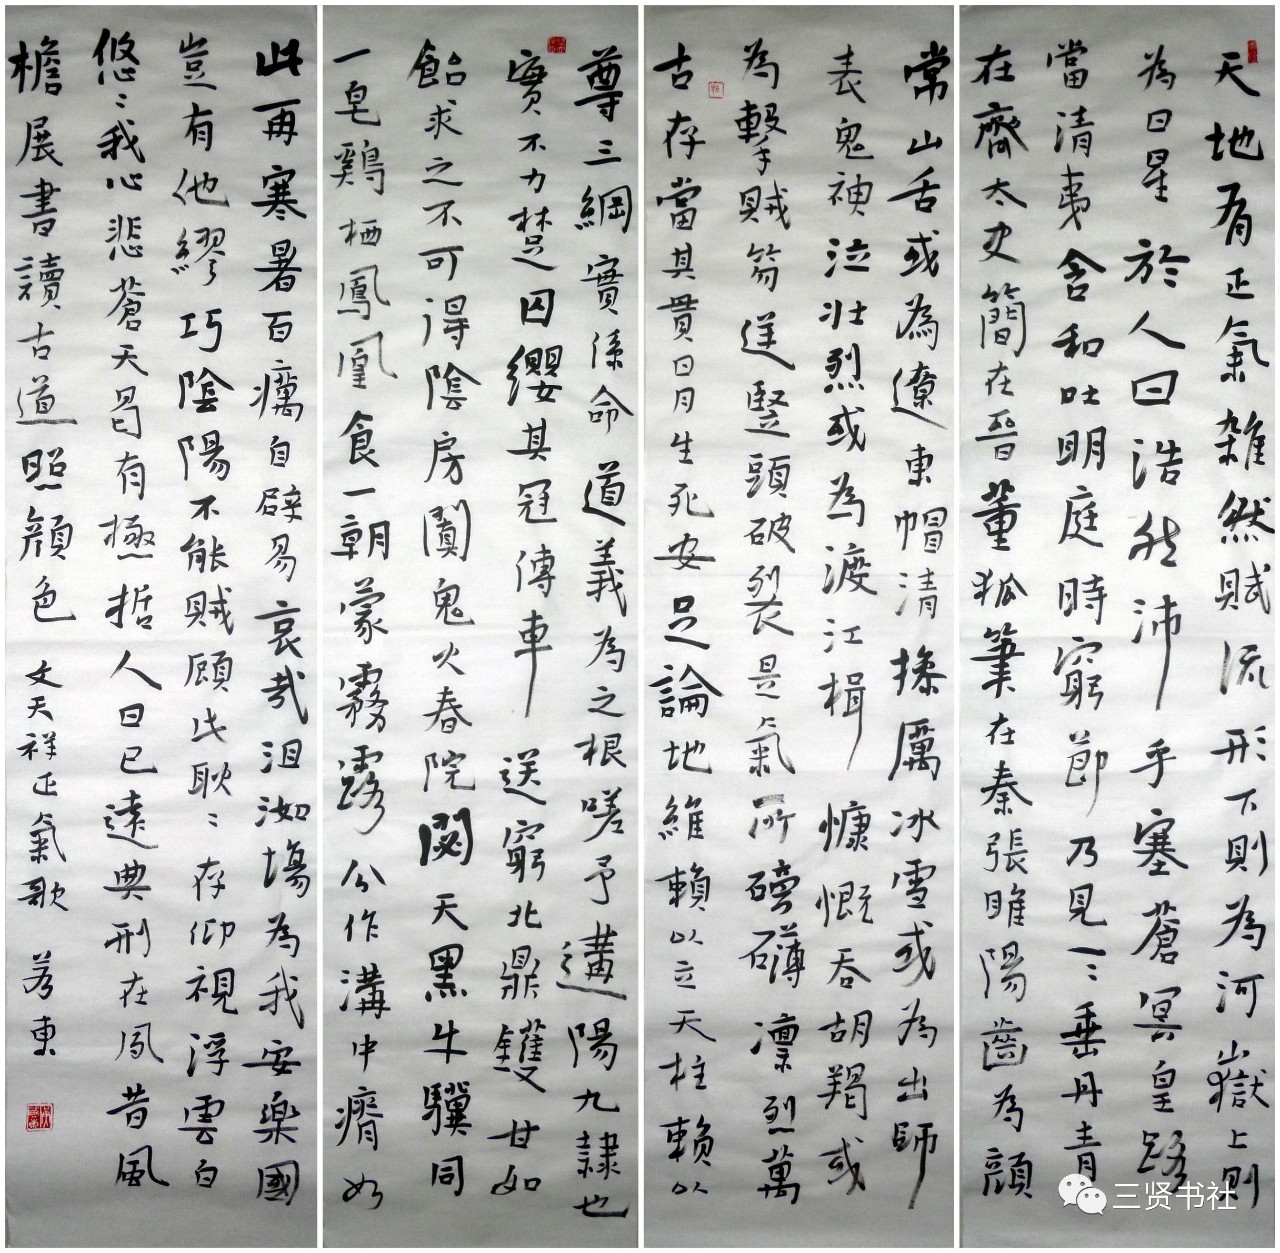 天地有正氣雜然賦流形下則為河嶽上則
為日星於人曰浩然沛乎塞蒼冥皇路
當清夷含和吐明庭時窮節乃見一〻垂丹青
在齊太史簡在晉董狐筆在秦張睢陽齒為顏
常山舌或為遼東帽清操厲冰雪或為出師
表鬼神泣壯烈或為渡江楫慷慨吞胡羯或
為擊賊笏逆豎頭破裂是氣所磅礴凜烈萬
古存當其貫日月生死安足論地維賴以立天柱賴以
尊三綱實係命道義為之根嗟予遘陽九隸也
實不力楚囚纓其冠傳車送窮北鼎鑊甘如
飴求之不可得陰房闃鬼火春院閟天黑牛驥同
一皂鷄栖鳳凰食一朝蒙霧露分作溝中瘠如
此再寒暑百癘自辟易哀哉沮洳場為我安樂國
豈有他繆巧陰陽不能賊顧此耿〻存仰視浮雲白
悠〻我心悲蒼天曷有極哲人日已遠典刑在夙昔風
檐展書讀古道照顏色 文天祥正氣歌 若東
三贤书社